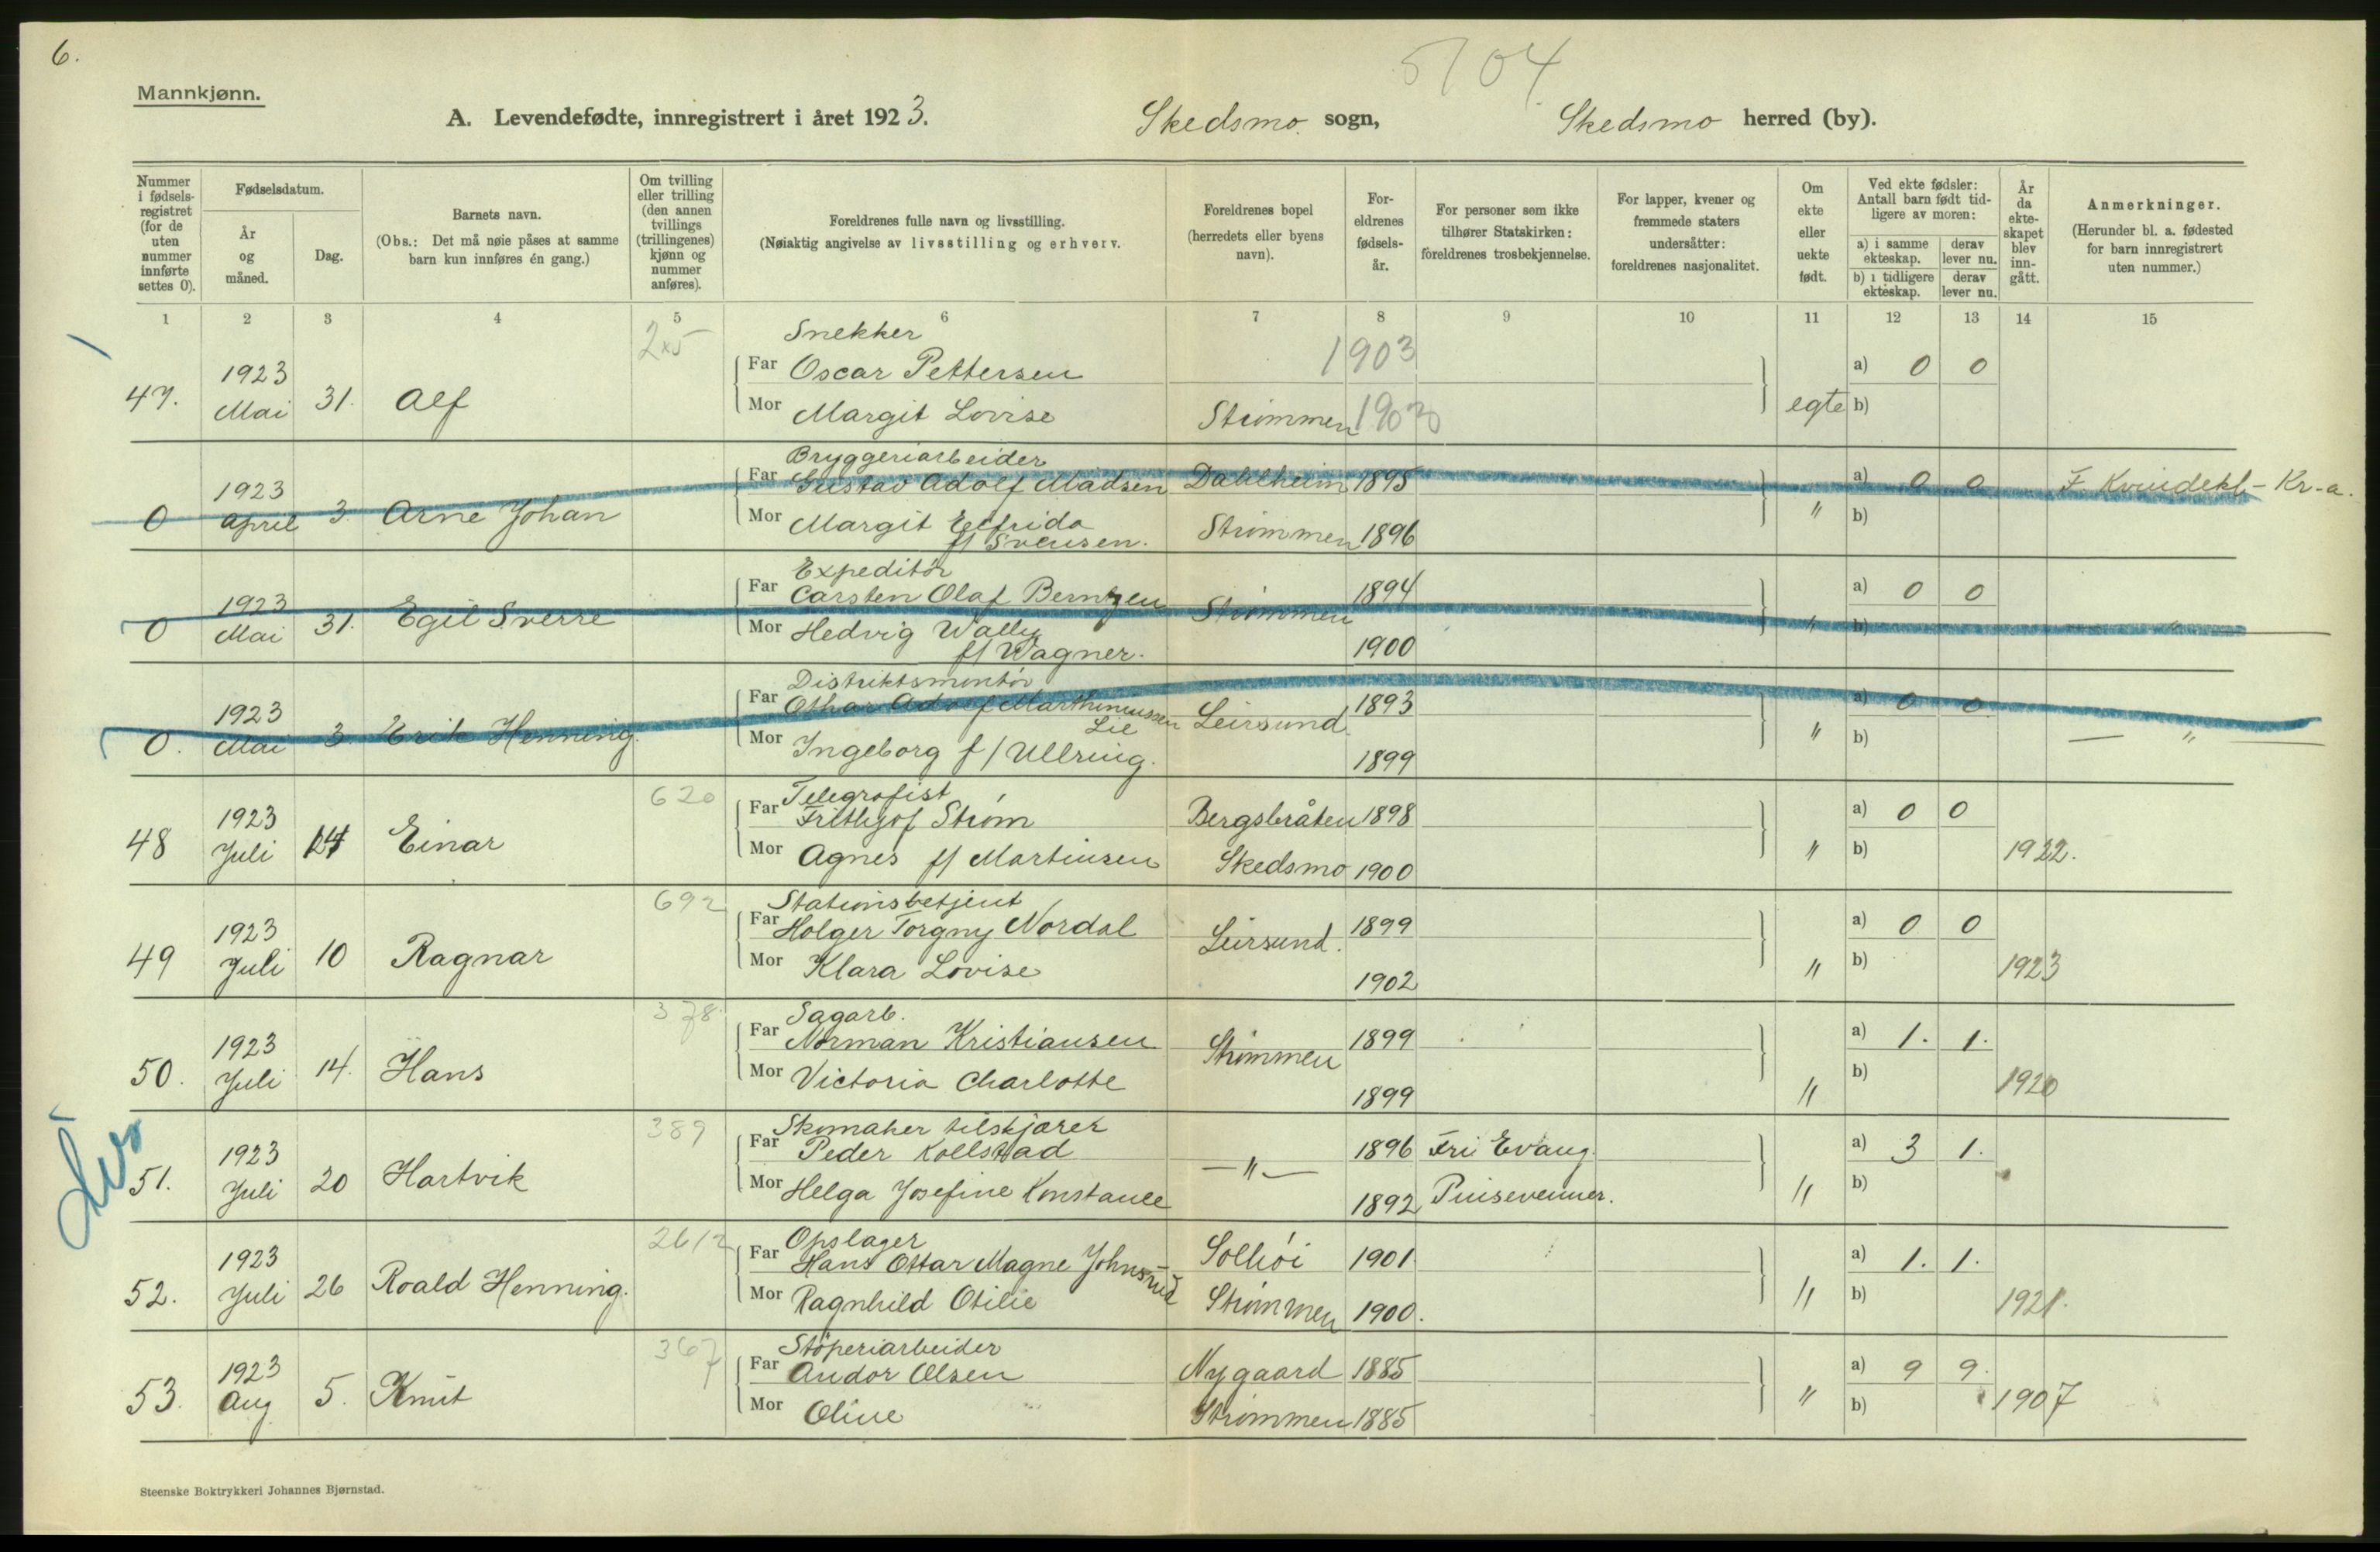 6.
5104
Mannkjønn.
A. Levendefødte, innregistrert i året 1923. Skedsmo sogn, Skedsmo herred (by).
Nummer i fødsels-registret (for de uten nummer innførte settes 0).
Fødselsdatum.
År og måned.
Dag.
Barnets navn.
(Obs.: Det må nøie påses at samme barn kun innføres én gang.)
Om tvilling eller trilling (den annen tvillings (trillingenes) kjønn og nummer anføres).
Foreldrenes fulle navn og livsstilling.
(Nøiaktig angivelse av livsstilling og erhverv.
Foreldrenes bopel (herredets eller byens navn).
For-eldrenes fødsels-år.
For personer som ikke tilhører Statskirken: foreldrenes trosbekjennelse.
For lapper, kvener og fremmede staters undersåtter: foreldrenes nasjonalitet.
Om ekte eller uekte født.
Ved ekte fødsler: Antall barn født tid-ligere av moren:
a) i samme ekteskap.
derav lever nu.
b) i tidligere ekteskap.
derav lever nu.
År da ekte-skapet blev inn-gått.
Anmerkninger.
(Herunder bl. a. fødested for barn innregistrert uten nummer.)
1 2 3 4 5 6 7 8 9 10 11 12 13 14 15
Snekker
47. 1923 Mai 31. Alf
Far Oscar Pettersen 1903 a) 0 0
Mor Margit Lovise Strømmen egte b)
Bryggeriarbeider
0 1923 april 3 Arne Johan
Far Gustav Adolf Madsen Dahlheim 1895 a) 0 0 F. Kvindekl - Kr-a.
Mor Margit Elfrida f/ Svensen. Strømmen 1896 " b)
Expeditør
0 1923 Mai 31. Egil Sverre
Far Carsten Olaf Berntzen Strømmen 1894 a) 0 0
Mor Hedvig Wally f/ Wagner. 1900 " b) "
Distriktsmontør
0. 1923 Mai 3 Erik Henning.
Far Othar Adolf Marthiniussen Lie Leirsund. 1893 a) 0 0
Mor Ingeborg f/ Ullring. 1899 " b) — " —
620 Telegrafist
48 1923 Juli 14 Einar
Far Frithjof Strøm Bergsbråten 1898 a) 0 0
Mor Agnes f/ Martinsen Skedsmo 1900 " b) 1922.
692 Stationsbetjent
49 1923 Juli 10 Ragnar
Far Holger Torgny Nordal Leirsund. 1899 a) 0 0
Mor Klara Lovise 1902 " b) 1923
378 Sagarb.
50. 1923 Juli 14. Hans
Far Norman Kristiansen Strømmen 1899 a) 1. 1.
Mor Victoria Charlotte 1899 " b) 1920
389 Skomaker tilskjærer
51. 1923 Juli 20 Hartvik
Far Peder Kollstad — " — 1896 Fri Evang. a) 3 1.
Mor Helga Josefine Konstance 1892 Pinsevenner. " b)
2612 Opslager
52. 1923 Juli 26 Roald Henning.
Far Hans Ottar Magne Johnsrud Solhøi 1901. a) 1. 1.
Mor Ragnhild Otilie Strømmen 1900. " b) 1921.
367 Støperiarbeider
53. 1923 Aug 5. Knut
Far Andor Olsen Nygaard 1885 a) 9 9.
Mor Oline Strømmen 1885 " b) 1907
Steenske Boktrykkeri Johannes Bjørnstad.